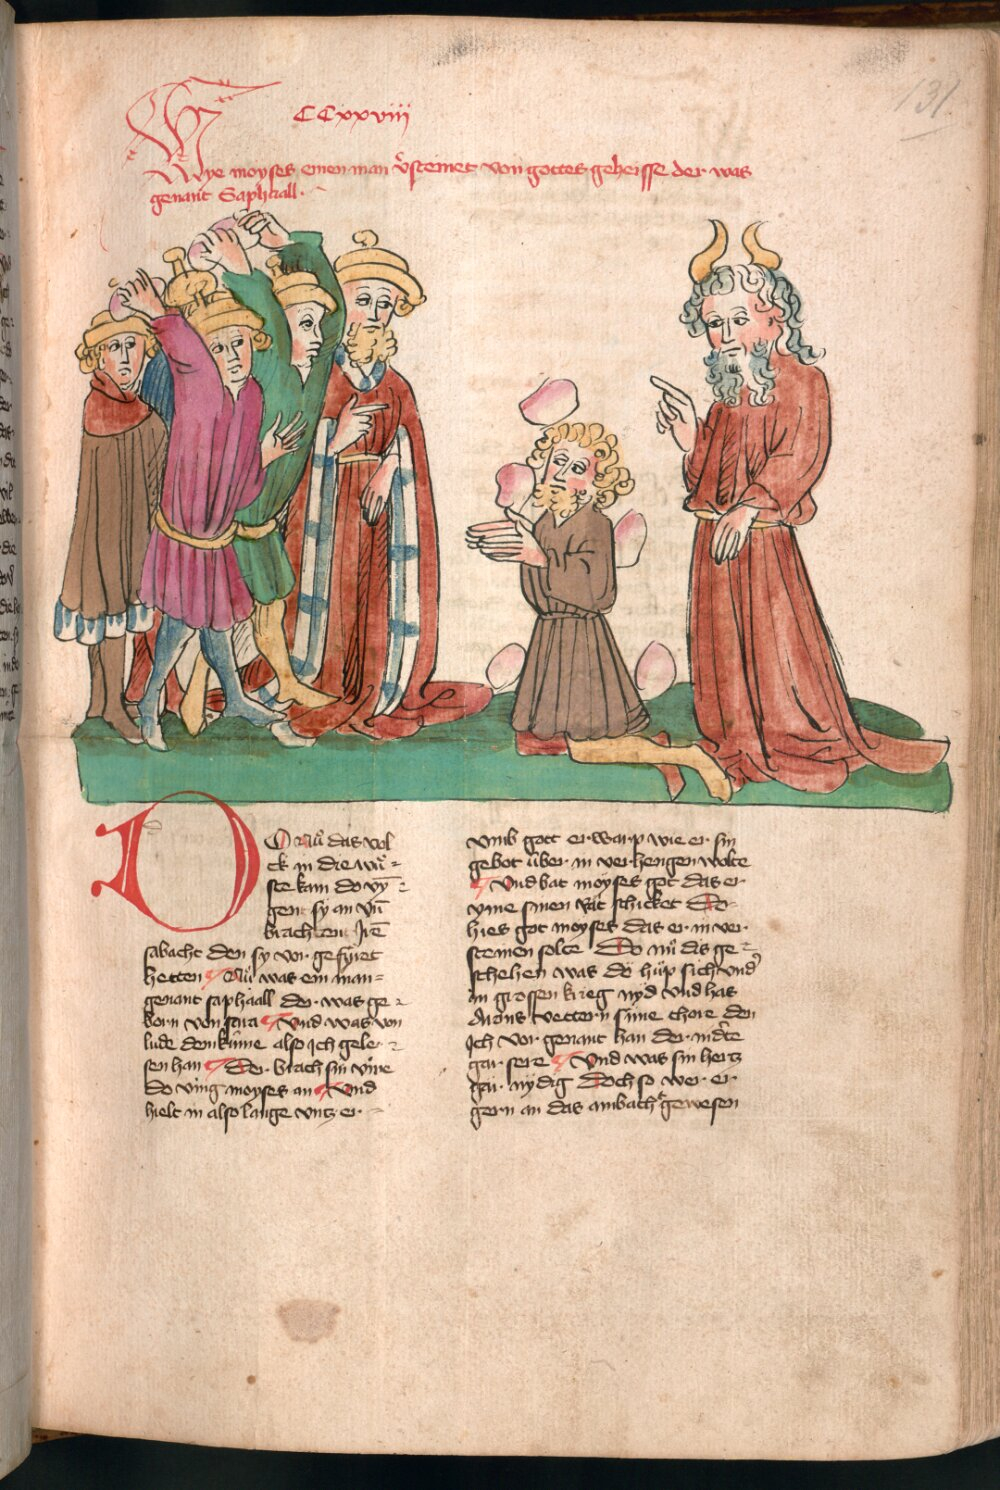 31
CCxxviij
Wye moyses einen man v͛stemet von gottes geheisse der was
genant Saphaall.
DO Nuͦ das vol
ck in die wuͤ-
ste kam do vy-
gent sy an vn̄
brachtent Jrē
sabacht den sy vor gefyret
hetten Nuͦ was ein man-
genant saphaall der was ge-
born von sara Vnd was von
lude dem kúnne also Jch gele-
sen han Der brach sin vire
do ving moyses an Vnd
hielt in also lange vntz er-
vmb gott erwarp wie er sin
gebot über in verhengen wolte
Vnd bat moyses got das er
yme sinen Rat schicket Do-
hies got moyses das er in ver
steinen solte Do nuͦ dis ge-
schehen was do huͦp sich vnd͛
in grossen krieg nyd vnd has
Arons vettern sune chore den
Jch vor genant han der
gar sere Vnd was sin hertz
gar nydig Doch so wer er
gern an das ambacht gewesen